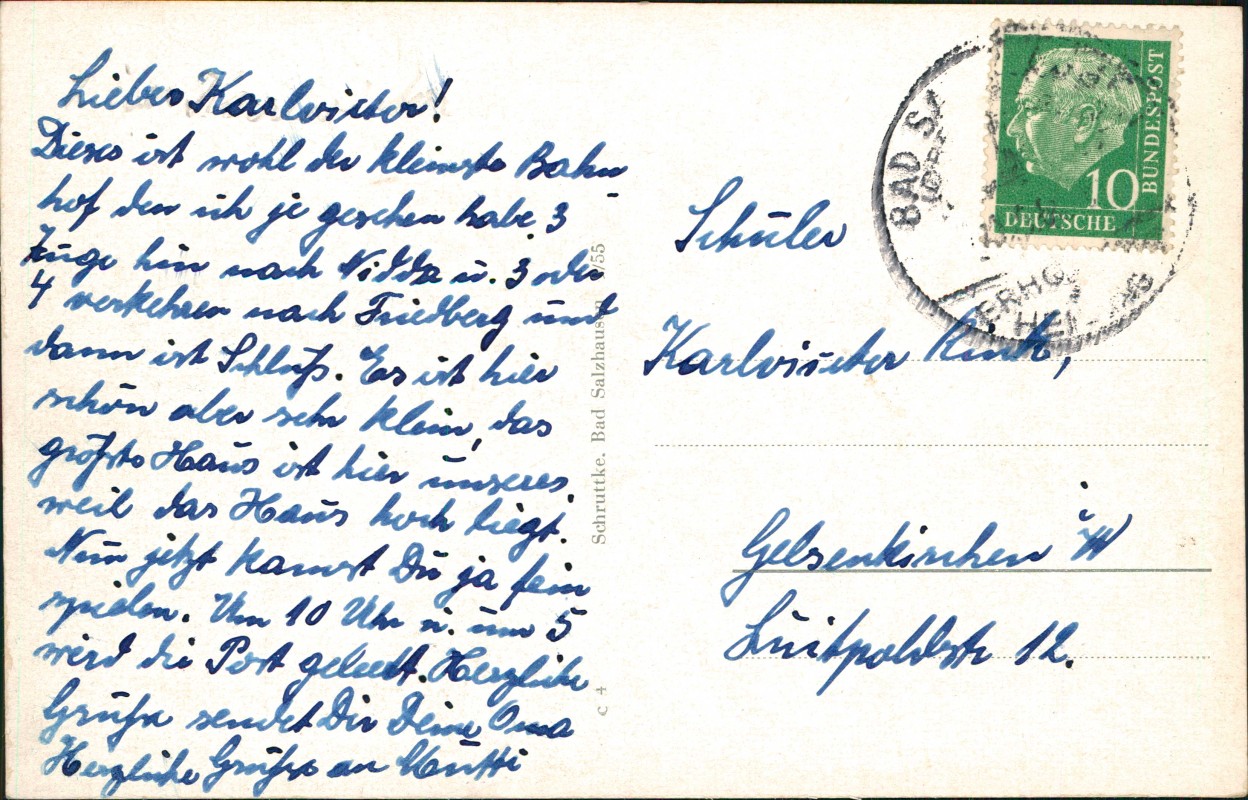 Liebes Karlvictor!
Dieses ist wohl der kleinste Bahn
hof den ich je gesehen habe. 3
Züge hin nach Nidda u. 3 oder
4 verkehren nach Friedberg und
dann ist Schluß. Es ist hier
schön aber sehr klein, das
größte Haus ist hier unseres,
weil das Haus hoch liegt.
Nun jetzt kannst Du ja fein
spielen. Um 10 Uhr u. um 5
wird die Post geleert. Herzliche
Grüße sendet Dir Deine Oma
Herzliche Grüße an Mutti
Schruttke. Bad Salzhausen 55
C 4
BAD SA
DEUTSCHE
BUNDESPOST
10
ERHO
HEI
Schüler
Karlvictor
Gelsenkirchen i/W
Luitpoldstr 12.